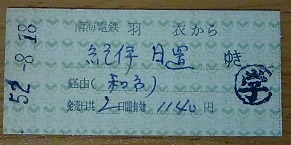 南海電鉄 羽衣から
紀伊日置 ゆき
経由(和市) 学
発売日共2日間有効 1140円
52.-8.18